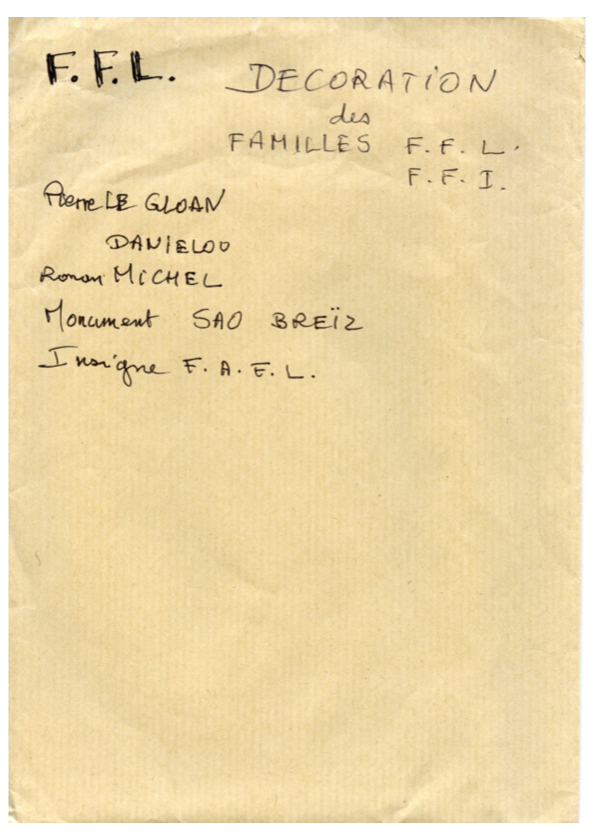 F. F. L.
DECORATION
des
FAMILLES F. F. L.
F. F. I.
Pierre LE GLOAN
DANIELOU
Ronan MICHEL
Monument SAO BREÏZ
Insigne F. A. F. L.